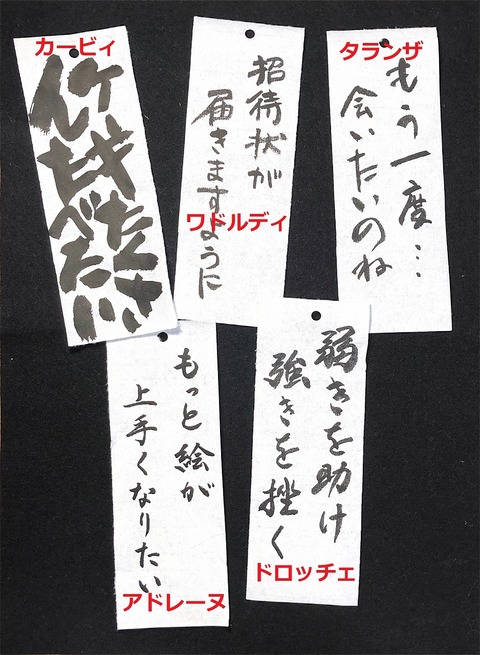 カービィ
ケーキたくさ
んたべたい
ワドルディ
招待状が
届きますように
タランザ
もう一度…
会いたいのね
アドレーヌ
もっと絵が
上手くなりたい
ドロッチェ
弱きを助け
強きを挫く